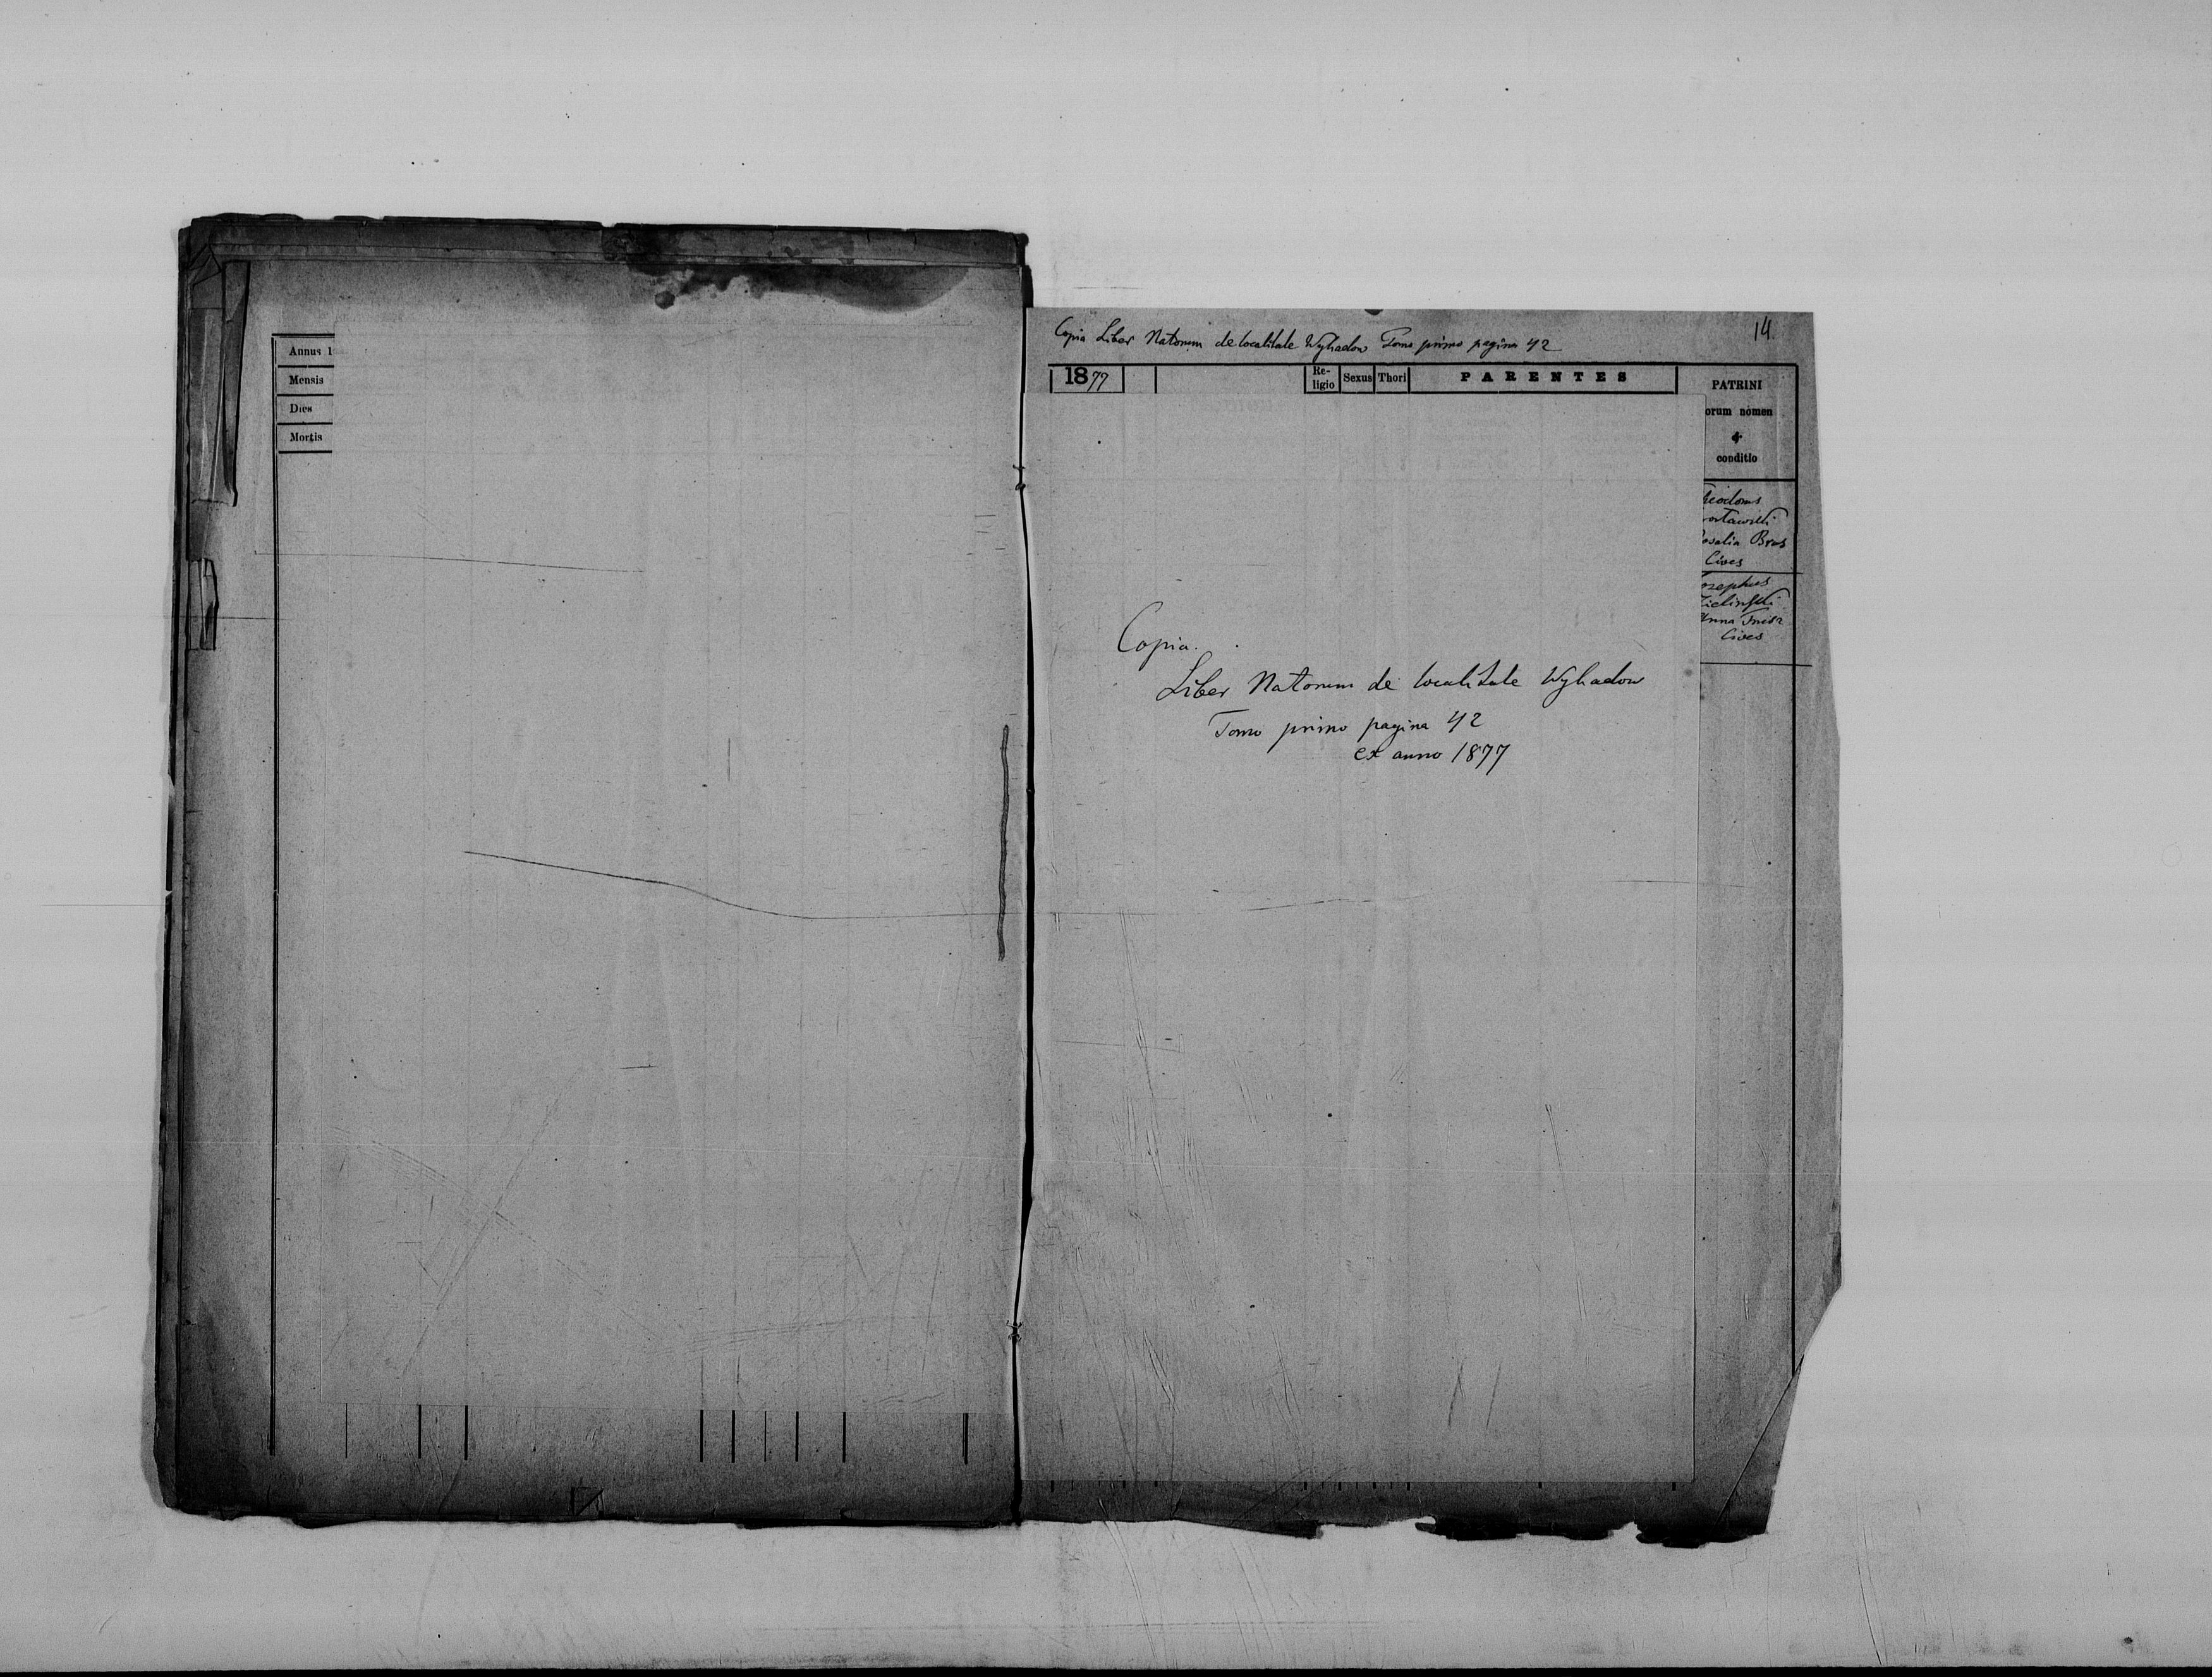 Annus 1
Mensis
Dies
Mortis
14.
Copia Liber Natorum de localitate Wyhadow Tomo primo pagina 42
1877
Re-
ligio
Sexus
Thori
PARENTES
PATRINI
orum nomen
&
conditio
heodorus
osalia Bras
Cives
osephus
ielinski
Anna
Cives
Copia.
Liber Natorum de localitate Wyhadow
Tomo primo pagina 42
ex anno 1877